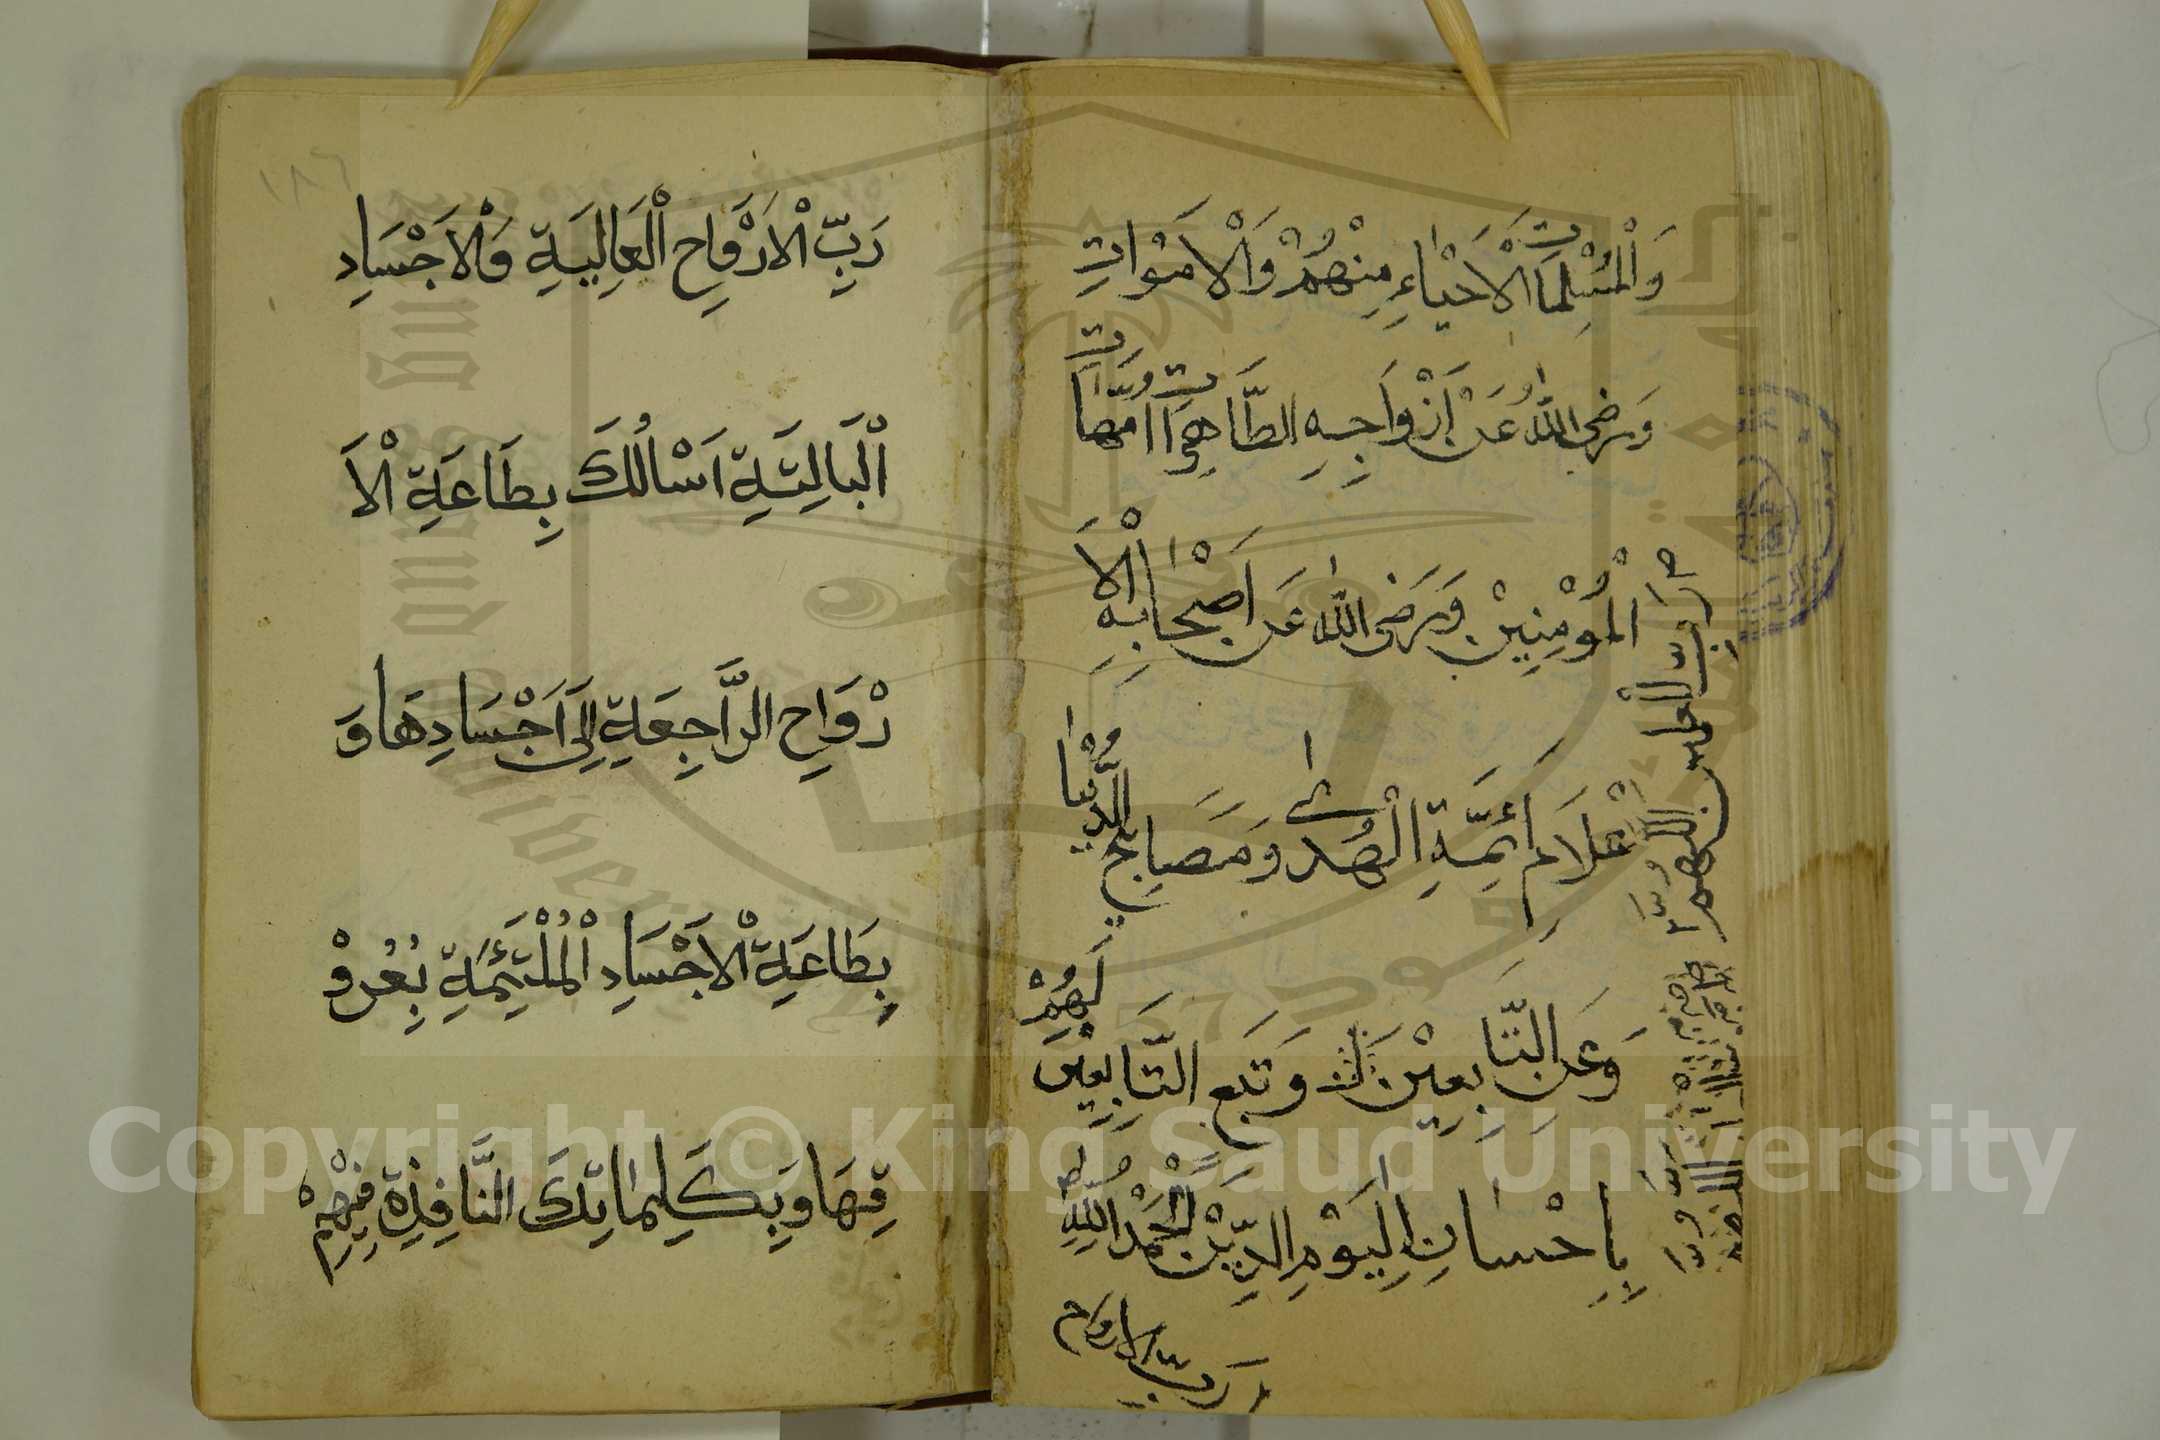 وَالْمُسْلِمَاتِ الْاَحْيَاءِ مِنْهُمْ وَالْاَمْوَاتِ
وَرَضِیَ اللّٰهُ عَنْ اَزْوَاجِهِ الطَّاهِرَاتِ اُمَّهَاتِ
الْمُؤْمِنِيْنَ وَرَضِیَ اللّٰهُ عَنْ اَصْحَابِهِ الْاَ
عْلَامِ اَئِمَّةِ الْهُدٰى وَمَصَابِيْحِ الدُّنْيَا
وَعَنِ التَّابِعِيْنَ وَتَبَعِ التَّابِعِيْنَ لَهُمْ
بِاِحْسَانٍ اِلٰى يَوْمِ الدِّيْنِ الْحَمْدُ لِلّٰهِ
رَبِّ الْعٰلَمِيْنَ اللّٰهُمَّ
رَبَّ الارواح
١٨٦
رَبِّ الْاَرْوَاحِ الْعَالِيَةِ وَالْاَجْسَادِ
الْبَالِيَةِ اَسْاَلُكَ بِطَاعَةِ الْاَ
رْوَاحِ الرَّاجِعَةِ اِلٰى اَجْسَادِهَا وَ
بِطَاعَةِ الْاَجْسَادِ الْمُلْتَئِمَةِ بِعُرُوْ
قِهَا وَبِكَلِمَاتِكَ النَّافِذَةِ فِيْهِمْ
Copyright © King Saud University